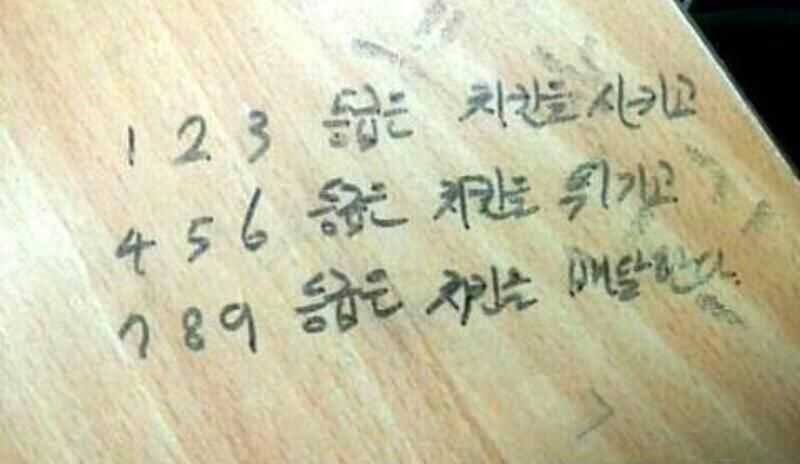 1 2 3 등급은 치킨을 시키고
4 5 6 등급은 치킨을 튀기고
7 8 9 등급은 치킨을 배달한다.